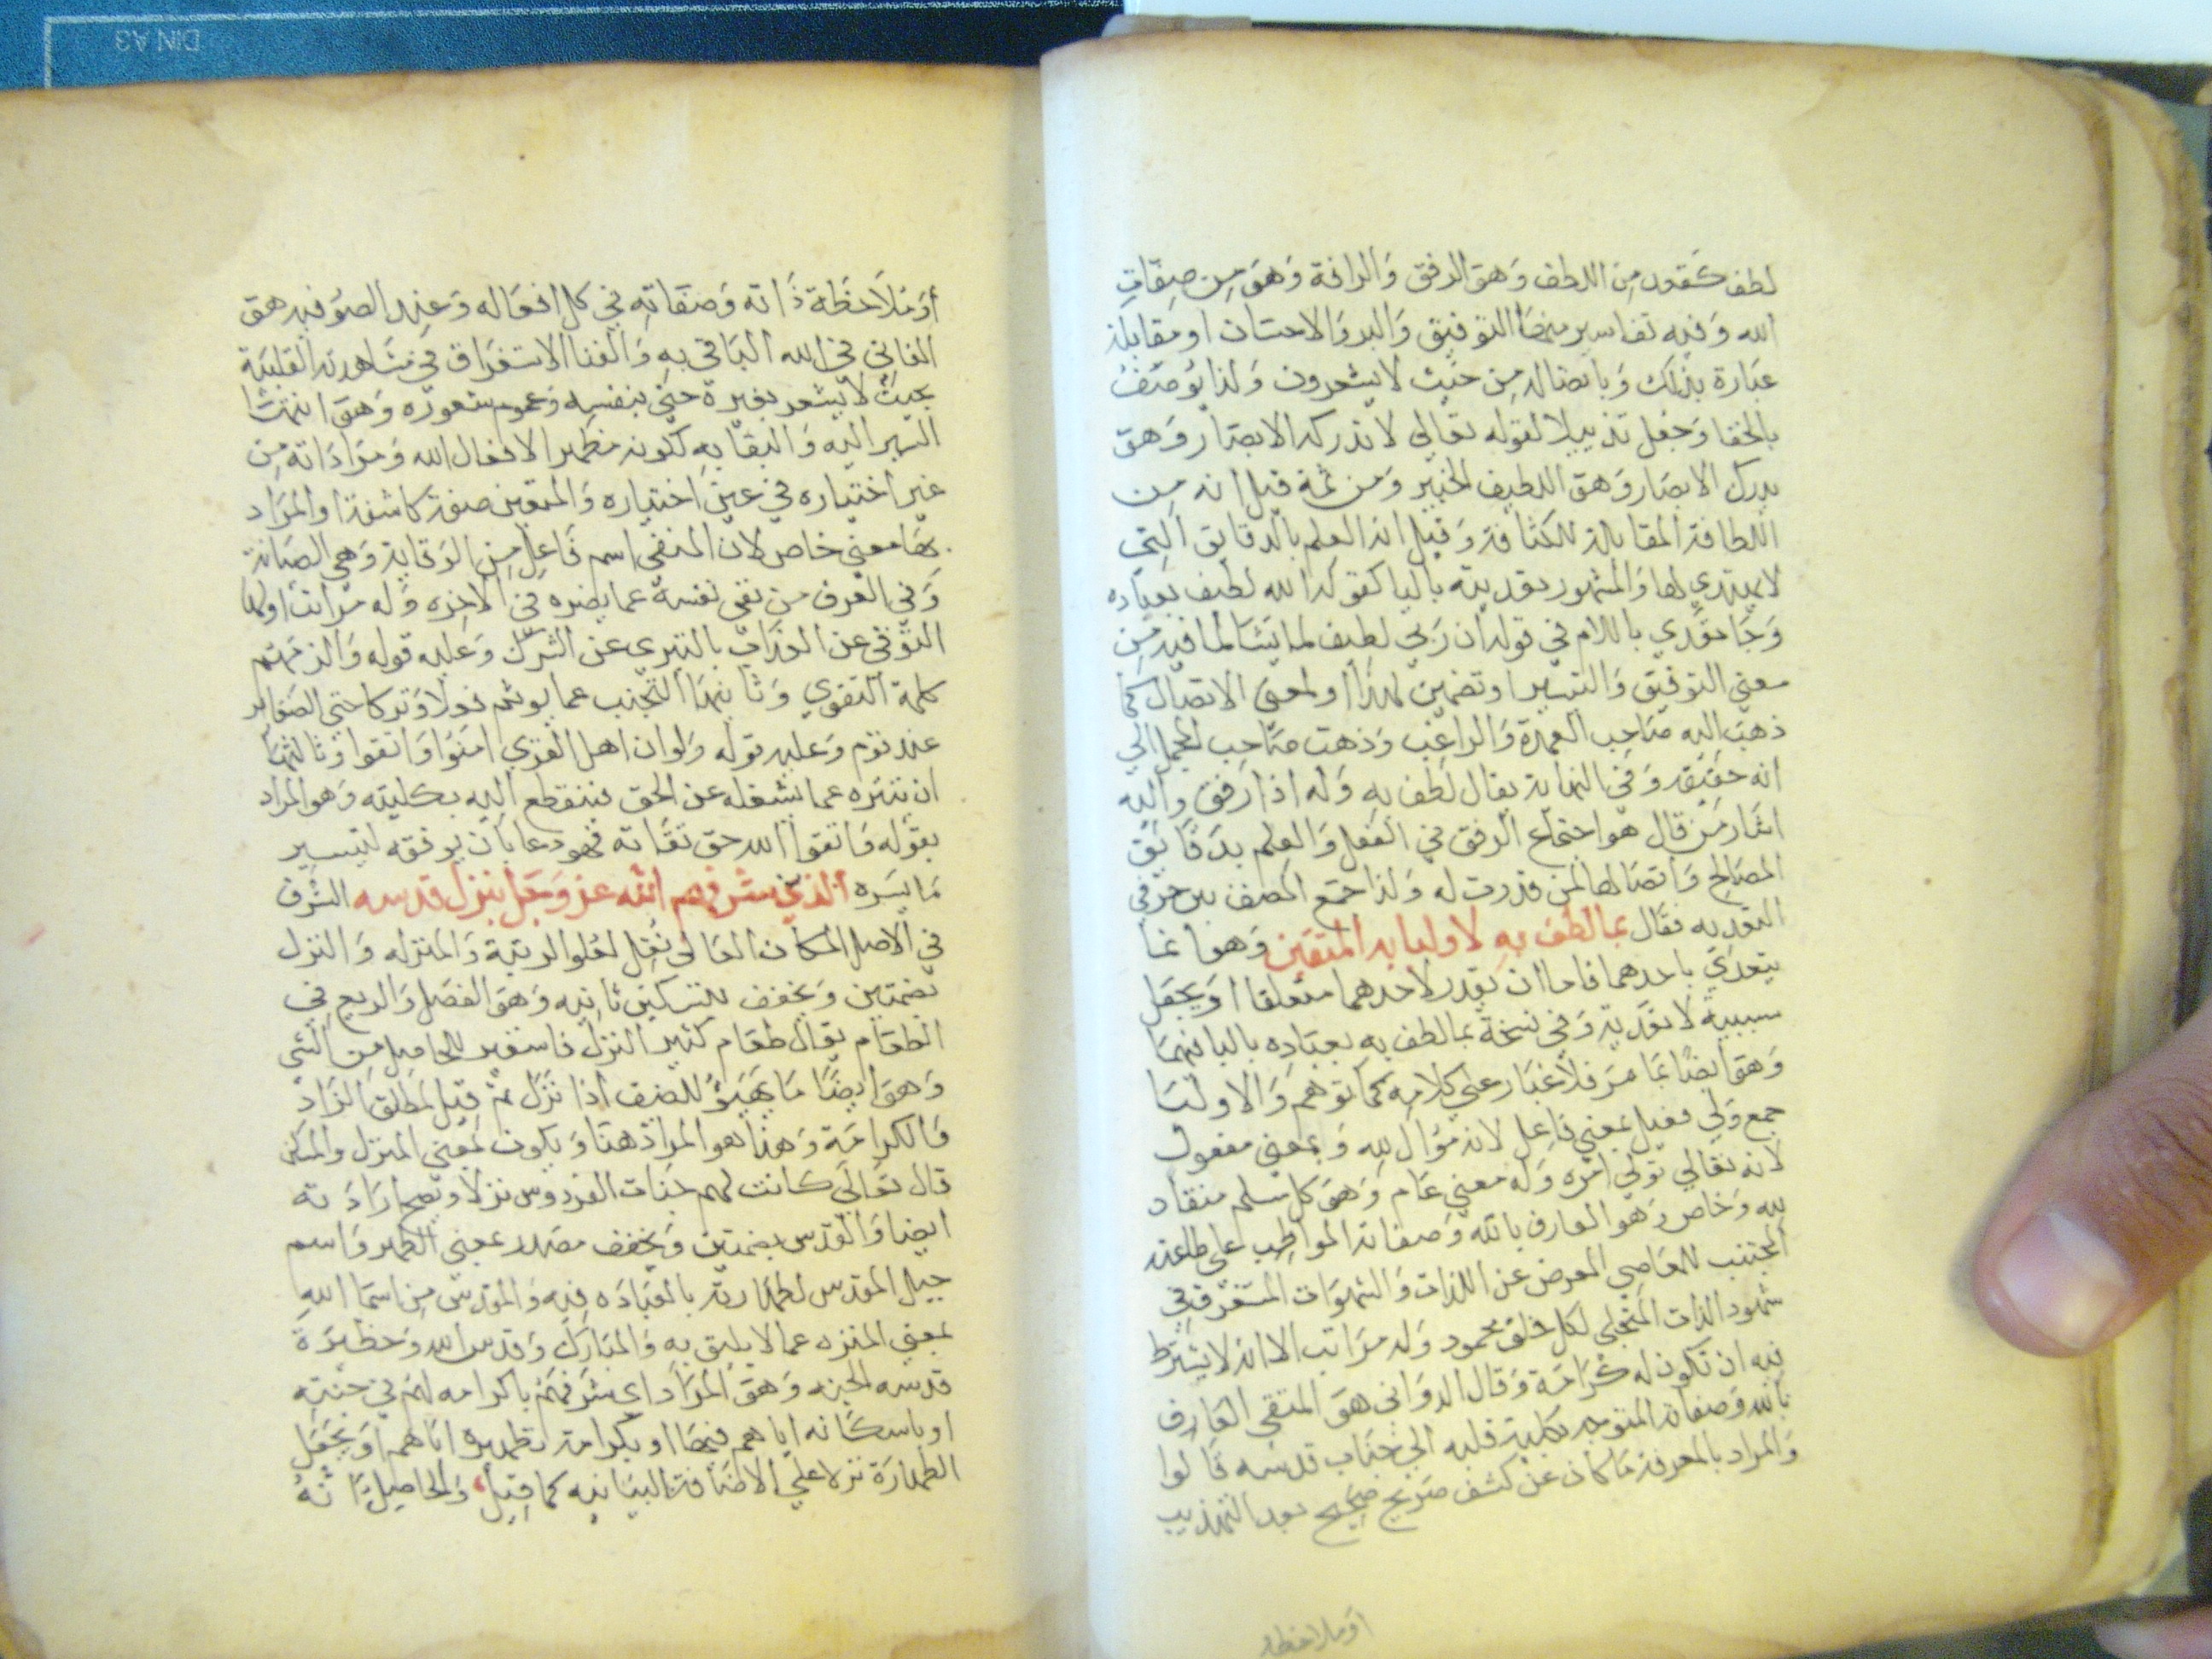 لطف كقعود من اللطف وهو الرفق والرافة وهو من صفات
الله وفيه تفاسير منها التوفيق والبر والاحسان او مقابلة
عبارة بذلك وبايصاله من حيث لا يشعرون ولذا يوصف
بالخفا وجعل تذييلا لقوله تعالى لا تدركه الابصار وهو
يدرك الابصار وهو اللطيف الخبير ومن ثمة قيل انه من
اللطافة المقابلة للكثافة وقيل انه العلم بالدقايق التي
لا يهتدي لها والمشهور تعديته باليا كقوله الله لطيف بعباده
وجا تعدي باللام في قوله ان ربي لطيف لما يشا لما فيه من
معنى التوفيق والتيسير او تضمين لهذا او لمعنى الايصال كما
ذهب اليه صاحب العمدة والراغب وذهب صاحب المجمل الي
انه حقيقه وفي النهاية يقال لطف به وله اذا رفق واليه
اشار من قال هو اجتماع الرفق في الفعل والعلم بدقايق
المصالح وايصالها لمن قدرت له ولذا جمع المصنف بين حرفي
التعديه فقال بما لطف به لاوليايه المتقين وهو انما
يتعدي باحدهما فاما ان يقدر لاحدهما متعلقا او يجعل
سببية لا تعدية وفي نسخة بما لطف به بعباده باليا فيهما
وهو ايضا بما مر فلا غبار علي كلامه كما توهم والاوليا
جمع ولي فعيل بمعني فاعل لانه موال لله وبمعني مفعول
لانه تعالي تولي امره وله معني عام وهو كل مسلم منقاد
لله وخاص وهو العارف بالله وصفاته المواظب على طاعته
المجتنب للمعاصي المعرض عن اللذات والشهوات المستغرق في
شهود الذات المتجلي لكل خلق محمود وله مراتب الا انه لا يشترط
فيه ان تكون له كرامة وقال الدواني هو المتقي العارف
بالله وصفاته المتوجه بكلية قلبه الي جناب قدسه قالوا
والمراد بالمعرفة ما كان عن كشف صريح صحيح بعد التهذيب
او ملاحظة
أو ملاحظة ذاته وصفاته في كل افعاله وعند الصوفيه هو
الفاني في الله الباقي به والفنا الاستغراق في مشاهدته القلبية
بحيث لا يشعر بغيره حتي بنفسه وعموم شعوره وهو انتها
السير اليه والبقا به ككونه مظهرا لافعال الله ومراداته من
غير اختياره في عين اختياره والمتقين صفة كاشفة او المراد
بها معني خاص لان المتقي اسم فاعل من الوقاية وهي الصيانة
وفي العرف من تقى نفسه عما يضره في الاخره وله مراتب اولها
التوقي عن العذاب بالتبري عن الشرك وعليه قوله والزمهم
كلمة التقوي وثانيها التجنب عما يوثم فعلا وتركا حتي الصغاير
عند قوم وعليه قوله ولو ان اهل القري امنوا واتقوا وثالثها
ان يتنزه عما يشغله عن الحق فينقطع اليه بكليته وهو المراد
بقوله واتقوا الله حق تقاته فهو دعا بان يوفقه لتيسير
ما يسره الذين شرفهم الله عز وجل بنزل قدسه الشرف
في الاصل المكان العالي نقل لعلو الرتبة والمنزله والنزل
بضمتين ويخفف بتسكين ثانيه وهو الفضل والريع في
الطعام يقال طعام كثير النزل فاستعير للحاصل من الشي
وهو ايضا ما يهيؤ للضيف اذا نزل ثم قيل لمطلق الزاد
والكرامة وهذا هو المراد هنا ويكون بمعني المنزل والمسكن
قال تعالي كانت لهم جنات الفردوس نزلا وتصح ارادته
ايضا والقدس بضمتين ويخفف مصدر بمعني الطهر واسم
جبل المقدس لطهارته بالعباده فيه والمقدس من اسما الله
بمعني المنزه عما لا يليق به والمبارك وقدس الله وحظيرة
قدسه الجنه وهو المراد اي شرفهم باكرامه لهم في جنته
او باسكانه اياهم فيها او بكرامة تطهيره اياهم او بجعل
الطهارة نزلا علي الاضافة البيانيه كما قيل والحاصل انه